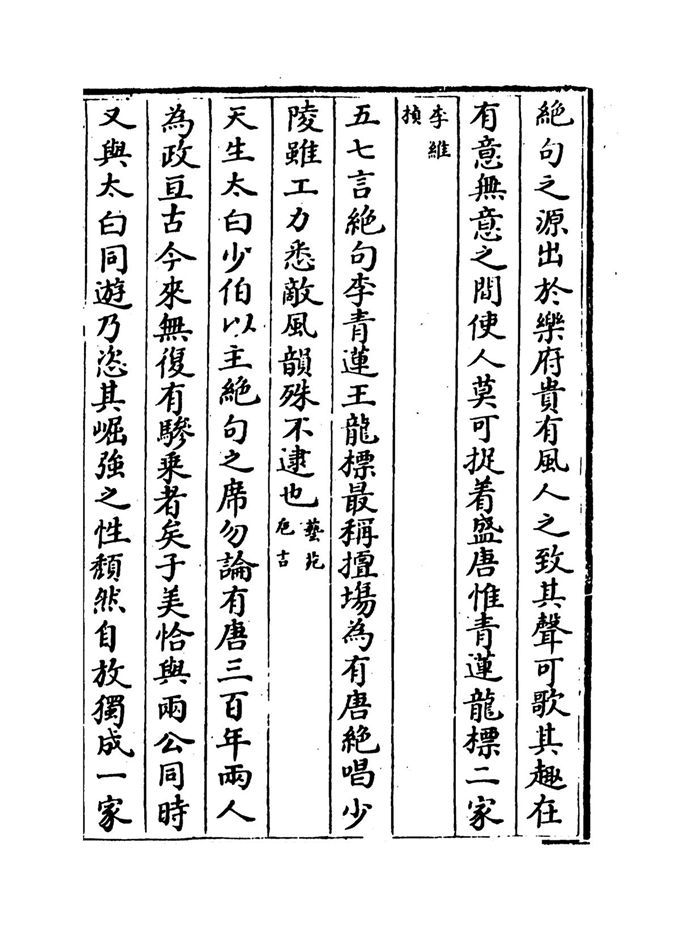 絶句之源出於樂府貴有風人之致其聲可歌其趣在
有意無意之間使人莫可捉着盛唐惟青蓮龍標二家
李維
楨
五七言絶句李青蓮王龍標最稱擅塲為有唐絶唱少
陵雖工力悉敵風韻殊不逮也藝苑
巵言
天生太白少伯以主絶句之席勿論有唐三百年兩人
為政亘古今來無復有驂乘者矣子美恰與兩公同時
又與太白同遊乃恣其崛強之性頽然自放獨成一家